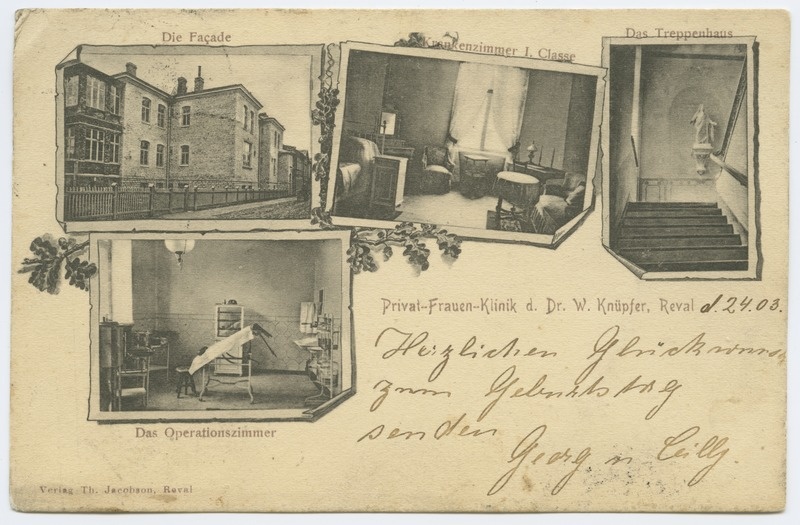 Die Façade
Krankenzimmer I. Classe
Das Treppenhaus
Privat-Frauen-Klinik d. Dr. W. Knüpfer, Reval d. 24.03.
Herzlichen Glückwunsch
zum Geburtstag
senden
Georg u
Das Operationszimmer
Verlag Th. Jacobson, Reval